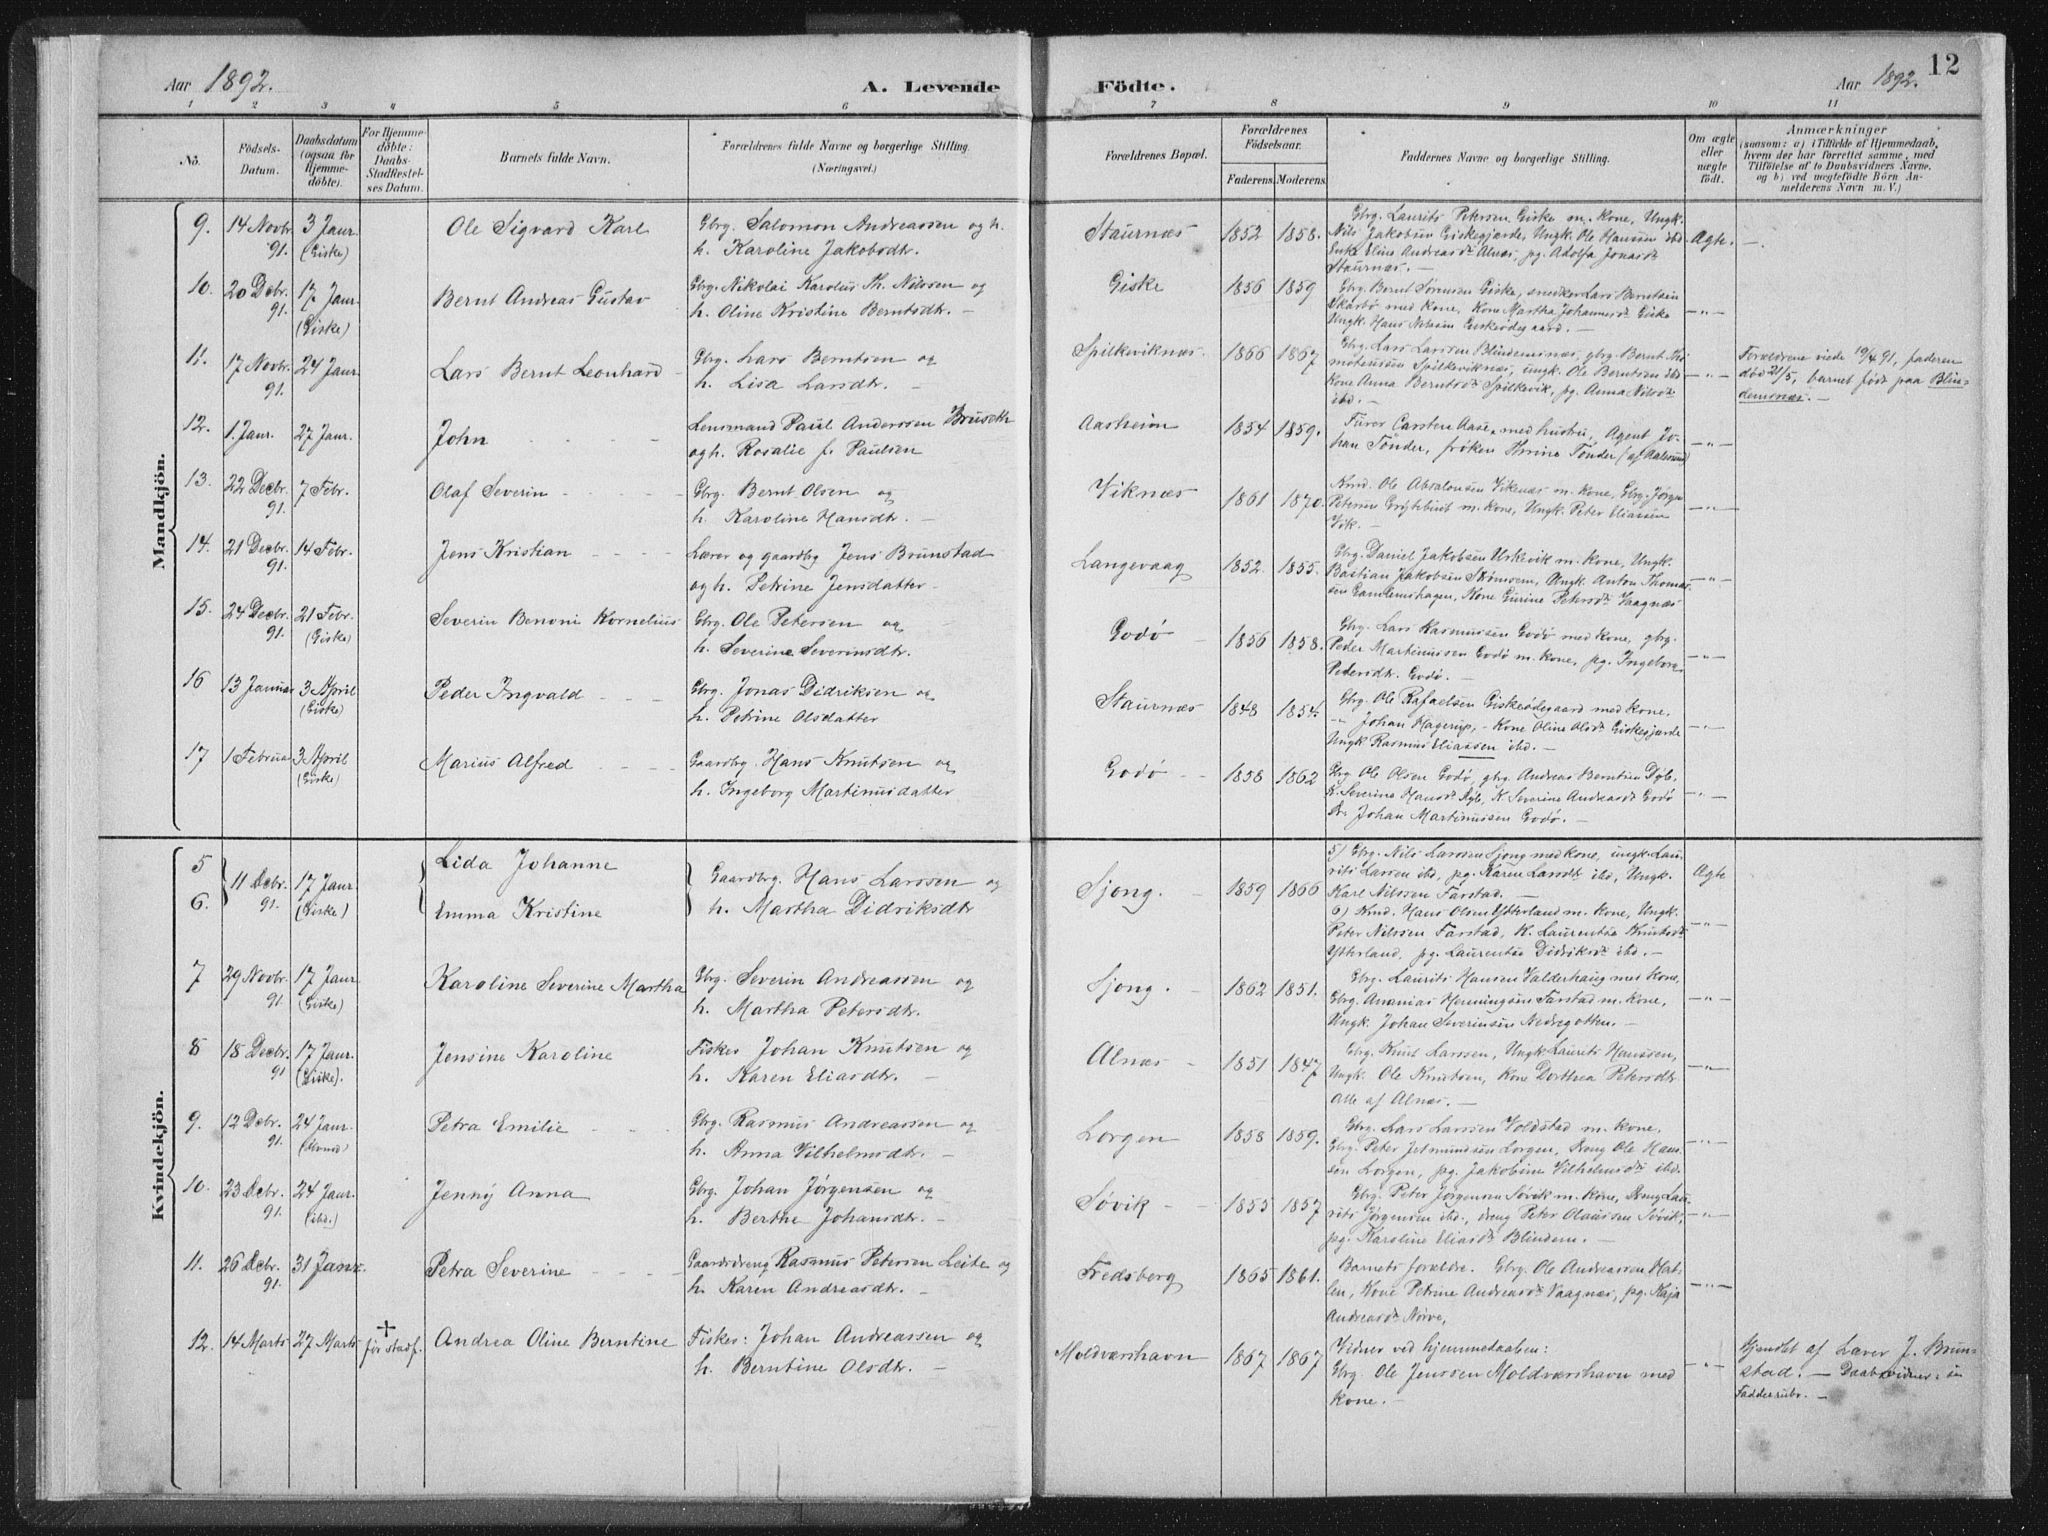 Aar 1892. A. Levende Födte. Aar 1892. 12
1 2 3 4 5 6 7 8 9 10 11
No. Födsels-Datum. Daabsdatum (ogsaa for Hjemme-döbte). For Hjemme-döbte: Daabs-Stadfæstel-ses Datum. Barnets fulde Navn. Forældrenes fulde Navne og borgerlige Stilling. (Næringsvei.) Forældrenes Bopæl. Forældrenes Födselsaar. Faderens Moderens. Faddernes Navne og borgerlige Stilling. Om ægte eller uægte födt. Anmærkninger
(saasom: a) i Tilfælde af Hjemmedaab,
hvem der har forrettet samme, med
Tilföielse af to Daabsvidners Navne,
og b) ved uægtefödte Börn An-
melderens Navn m. V.)
Mandkjön.
9. 14 Novbr. 91. 3 Janr. (Giske) Ole Sigvard Karl Gbrg. Salomon Andreassen og h.
h. Karoline Jakobsdtr. Staurnæs 1852 1858. Gbrg. Laurits Petersen Giske m. Kone, Ungk.
Nils Jakobsen Giskegjærde, Ungk. Ole Hanssen ibd
Enke Eline Andreasdt Alnæs, pg. Adolfa Jonasdt
Staurnæs. Ægte. —
10. 20 Debr. 91. 17 Janr. (Giske) Bernt Andreas Gustav Gbrg. Nikolai Karolus Th. Nilssen og
h. Oline Kristine Berntsdtr. Giske 1856 1859 Gbrg. Bernt Sørensen Giske, snedker Lars Berntsen
Skarbø med Kone, Kone Martha Johannesdt Giske
Ungk. Hans Nilssen Giskeødegaard. — — " —
11. 17 Novbr. 91. 24 Janr. Lars Bernt Leonhard Gbrg. Lars Berntsen og
h. Lisa Larsdtr. Spilkeviknæs. 1866 1867 Gbrg. Lars Larssen Blindemsnæs, gbrg. Bernt
Spilkeviknæs, ungk. Ole Berntsen ibd
Kone Anna Berntsdt Spilkevik, pg. Anna Nilsdt
ibd. — — " — Forældrene viede 19/4 91, faderen
død 21/5, barnet født paa Blin-
demsnæs. —
12. 1. Janr. 27 Janr. John Lensmand Paul Anderssen Bruseth
og h. Rosalie f. Paulsen Aasheim 1854 1859. Furer Carsten Aase med hustru, Agent Jo-
han Tønder, frøken Thrine Tønder (af Aalesund) — " —
13. 22 Decbr. 91. 7 Febr. Olaf Severin Gbrg. Bernt Olsen og
h. Karoline Hansdtr. Viknæs 1861 1870. Kmd. Ole Absalonsen Viknæs m. Kone, Gbrg. Jørgen
Petersen m. Kone, Ungk. Peter Eliassen
Vik. — — " —
14. 21 Decbr. 91. 14 Febr. Jens Kristian Lærer og gaardbg Jens Brunstad
og h. Petrine Jensdatter Langevaag 1852. 1855. Gbrg. Daniel Jakobsen Urkevik m. Kone, Ungk.
Bastian Jakobsen, Ungk. Anton Thomas-
sen Gamlemshagen, Kone Gurine Petersdt Vaagnæs — " —
15. 24 Decbr. 91. 21 Febr. (Giske) Severin Benoni Kornelius Gbrg. Ole Petersen og
h. Severine Severinsdtr. Godø 1856 1858. Gbrg. Lars Rasmussen Godø med Kone, gbrg.
Peder Martinussen Godø m. Kone, pg. Ingeborg
Petersdtr. Godø. — " —
16 13 Januar 3 April (Giske) Peder Ingvald Gbrg. Jonas Didriksen og
h. Petrine Olsdatter Staurnæs 1848 1854. Gbrg. Ole Rafaelsen Giskeødegaard med Kone.
" Johan Hagerup, — Kone Oline Olsdt Giskegjærde
Ungk Rasmus Eliassen ibd. — — " —
17 1 Februar 3 April (Giske) Marius Alfred Gaardbg. Hans Knutsen og
h. Ingeborg Martinusdatter Godø 1858 1862 Gbrg Ole Olsen Godø, gbrg. Andreas Berntsen Dyb.
K. Severine Hansdt Dyb, K. Severine Andreasdt Godø
Johan Martinussen Godø. — — " —
Kvindekjön.
5 11 Debr. 91. 17 Janr. (Giske) Lida Johanne Gaardbg. Hans Larssen og
h. Martha Didriksdtr Sjong. 1859 1866 5) Gbrg. Nils Larssen Sjong med Kone, ungk. Lau-
rits Larsen ibd, pg. Karen Larsdt ibd, Ungk.
Karl Nilssen Farstad. — Ægte
6. Emma Kristine 6) Kmd. Hans Olsen Ytterland m. Kone, Ungk.
Peter Nilssen Farstad, K. Laurentse Knutsdt
Ytterland, pg. Laurentse Didriksdt ibd. — — " —
7 29 Novbr. 91. 17 Janr. (Giske) Karoline Severine Martha Gbrg. Severin Andreassen og
h. Martha Petersdtr. Sjong. 1862 1851. Gbrg. Laurits Hansen Valderhaug med Kone,
Gbrg. Ananias Henningsen Farstad m. Kone,
Ungk. Johan Severinsen Nedregotten. — — " —
8 18 Decbr. 91 17 Janr. (Giske). Jensine Karoline Fisker Johan Knutsen og
h. Karen Eliasdtr. — Alnæs 1851 1847 Gbrg. Knut Larssen, Ungk Laurits Hanssen,
Ungk. Ole Knutsen, Kone Dorthea Petersdtr
alle af Alnæs. — — " —
9. 12 Debr. 91. 24 Janr. Petra Emilie Gbrg. Rasmus Andreassen og
h. Anna Vilhelmsdtr. — Lorgen 1858 1859. Gbrg. Lars Larssen Voldstad m. Kone.
Gbrg. Peter Jetmundsen Lorgen, Dreng Ole Hans-
sen Lorgen, pg. Jakobine Vilhelmsdt ibd. — " —
10. 23 Debr. 91. 24 Janr. (ibd.) Jenny Anna Gbrg. Johan Jørgensen og
h. Berthe Johansdtr. — Søvik 1855 1857 Gbrg. Peter Jørgensen Søvik m. Kone, Dreng Lau-
rits Jørgensen ibd., dreng Peter Olaussen Søvik,
pg. Karoline Eliasdt Blindem. — — " —
11. 26 Debr. 91. 31 Janr. Petra Severine Gaardsdreng Rasmus Petersen Leite og
h. Karen Andreasdtr. — Fredsberg 1865 1861. Barnets forældre. Gbrg. Ole Andreassen Hat-
len, Kone Petrine Andreasdt Vaagnæs, pg. Kaja
Andreasdt Nørve, — " —
12. 14 Marts 27 Marts + før stadf. Andrea Oline Berntine Fisker: Johan Andreassen og
h. Berntine Olsdtr. — Moldværshavn 1867 1867 Vidner ved hjemmedaaben:
Gbrg. Ole Jenssen Moldværshavn med
Kone. — — " — Hjemdbt af Lærer J. Brun-
stad. — Daabsvidner: se
Fadderrubr. —